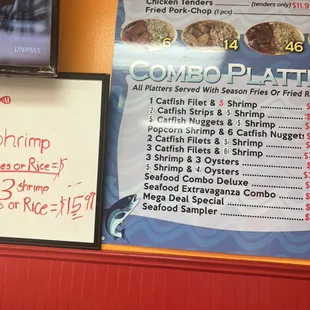 UNIMAS
Shrimp
es or Rice =
3 shrimp
s or Rice = $15.99
Chicken Tenders
(tenders only) $11.9
Fried Pork-Chop (1 pcs)
6 14 46
COMBO PLATT
All Platters Served With Season Fries Or Fried R
1 Catfish Filet & 5 Shrimp
2 Catfish Strips & 5 Shrimp
5 Catfish Nuggets & 5 Shrimp
Popcorn Shrimp & 6 Catfish Nuggets
2 Catfish Filets & 5 Shrimp
3 Catfish Filets & 6 Shrimp
3 Shrimp & 3 Oysters
5 Shrimp & 4 Oysters
Seafood Combo Deluxe
Seafood Extravaganza Combo
Mega Deal Special
Seafood Sampler